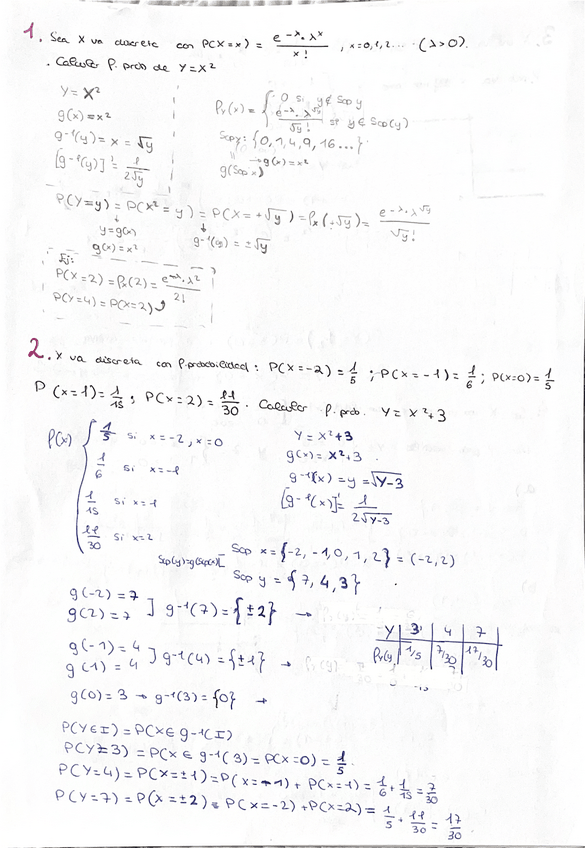 1. Sea X va discreta con P(X=x) = e^-λ · λ^x / x! , x=0,1,2.... (λ>0).
. Calcular f. prob de Y=X²
Y = X²
g(x) = x²
g^-1(y) = x = √y
[g^-1(y)]' = 1 / 2√y
P_Y(x) = { 0 si y∉ Sop y
e^-λ · λ^√y / √y! si y∈ Sop(y)
Sop y: {0, 1, 4, 9, 16 ...}
g(Sop x) → g(x) = x²
P(Y=y) = P(X²=y) = P(X=+√y) = P_X(+√y) = e^-λ · λ^√y / √y!
y=g(x)
g(x)=x²
g^-1(y) = ±√y
Ej:
P(X=2) = P_X(2) = e^-λ · λ² / 2!
P(Y=4) = P(X=2)
2. X va discreta con f. probabilidad: P(X=-2) = 1/5 ; P(X=-1) = 1/6 ; P(X=0) = 1/5
P(X=1) = 1/15 ; P(X=2) = 11/30 . Calcular f. prob. Y = X²+3
P(x) { 1/5 si x=-2, x=0
1/6 si x=-1
1/15 si x=1
11/30 si x=2
Y = X²+3
g(x) = x²+3.
g^-1(x) = y = √Y-3
[g^-1(x)]' = 1 / 2√Y-3
Sop x = {-2, -1, 0, 1, 2} = (-2, 2)
Sop(y)=g(Sop(x))
Sop y = {7, 4, 3}
g(-2) = 7
g(2) = 7 ] g^-1(7) = {±2} →
g(-1) = 4
g(1) = 4 ] g^-1(4) = {±1} →
g(0) = 3 → g^-1(3) = {0} →
Y | 3 | 4 | 7
P_Y(y) | 1/5 | 7/30 | 17/30
P(Y∈I) = P(X∈ g^-1(I)
P(Y=3) = P(X∈ g^-1(3) = P(X=0) = 1/5.
P(Y=4) = P(X=±1) = P(X=-1) + P(X=1) = 1/6 + 1/15 = 7/30
P(Y=7) = P(X=±2) = P(X=-2) + P(X=2) = 1/5 + 11/30 = 17/30